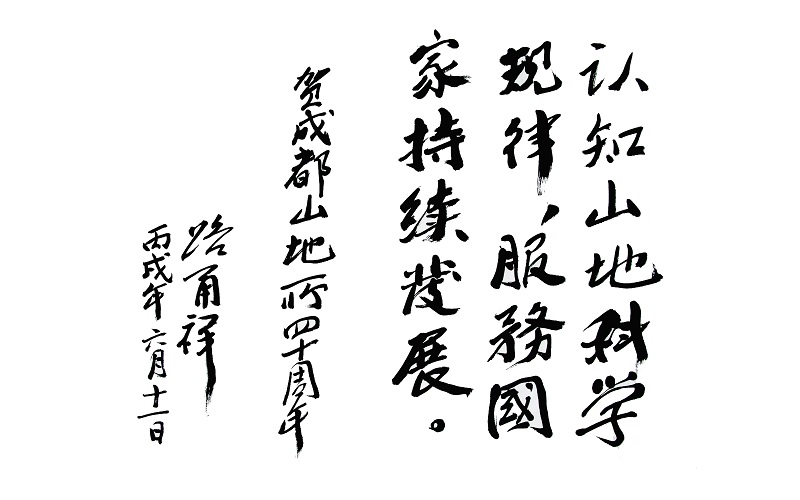 认知山地科学
规律，服務國
家持续发展。
贺成都山地所四十周年
路甬祥
丙戌年六月十一日